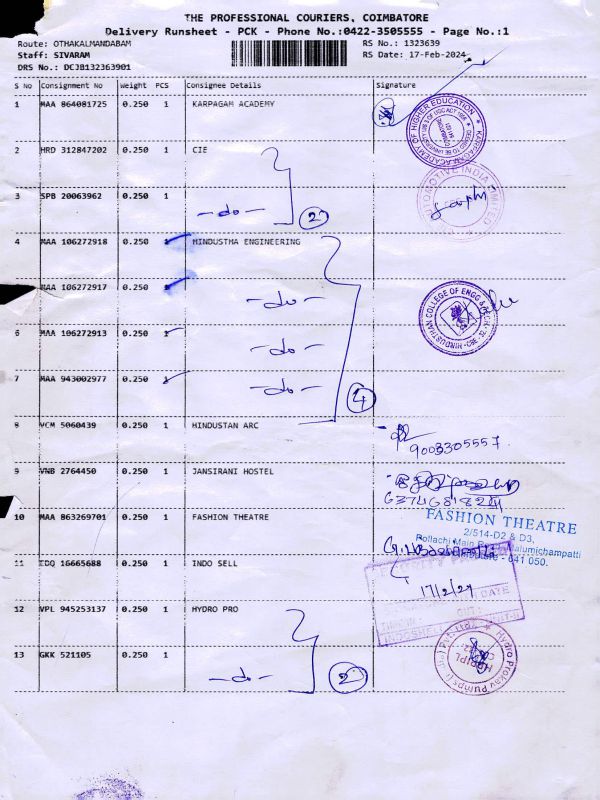 THE PROFESSIONAL COURIERS, COIMBATORE
Delivery Runsheet - PCK - Phone No.:0422-3505555 - Page No.:1
Route: OTHAKALMANDABAM RS No.: 1323639
Staff: SIVARAM RS Date: 17-Feb-2024
DRS No.: DCJB132363901
S No Consignment No Weight PCS Consignee Details Signature
1 MAA 864081725 0.250 1 KARPAGAM ACADEMY
KARPAGAM ACADEMY OF HIGHER EDUCATION
2 HRD 312847202 0.250 1 CIE
AUTOMOTIVE INDIA LIMITED
3 SPB 20063962 0.250 1
-do- 2
4 MAA 106272918 0.250 1 HINDUSTHA ENGINEERING
MAA 106272917 0.250
-do-
HINDUSTHAN COLLEGE OF ENGG & TECH
6 MAA 106272913 0.250 1
-do-
MAA 943002977 0.250 1
-do- 4
8 VCM 5060439 0.250 1 HINDUSTAN ARC
9003305557
9 VNB 2764450 0.250 1 JANSIRANI HOSTEL
10 MAA 863269701 0.250 1 FASHION THEATRE
FASHION THEATRE
2/514-D2 & D3,
Pollachi Main
641 050.
11 EDQ 16665688 0.250 1 INDO SELL
17/2/24
DATE
12 VPL 945253137 0.250 1 HYDRO PRO
13 GKK 521105 0.250 1
-do- 2
Hydro Prokav Pumps